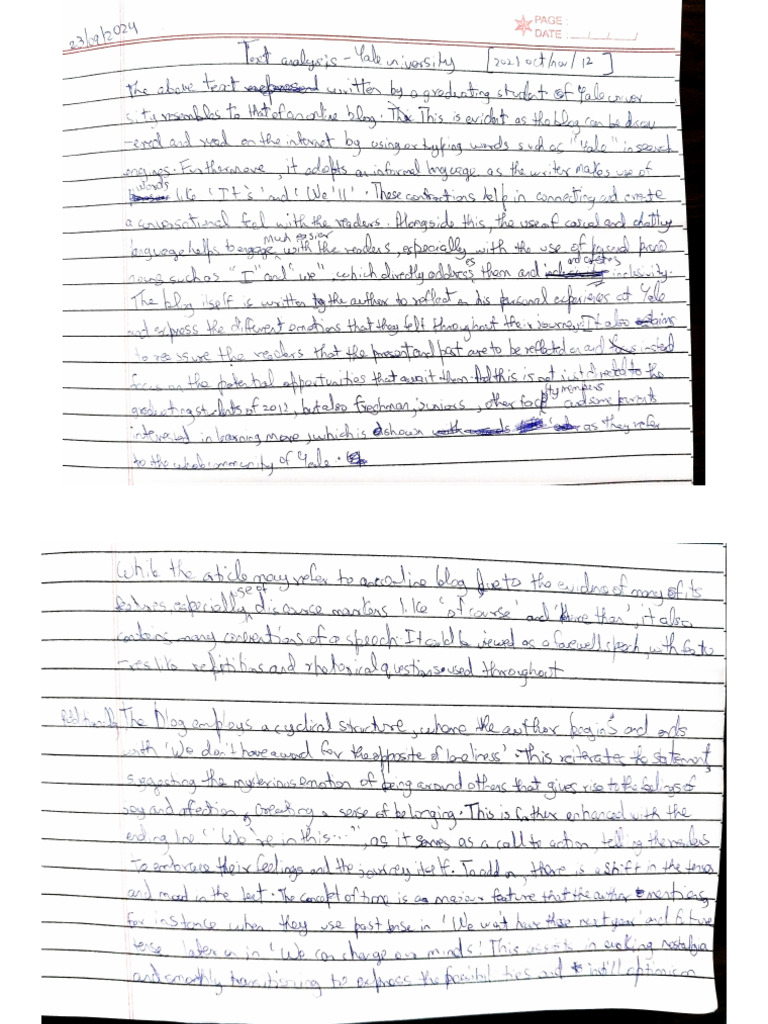 23/09/2024
PAGE :
DATE : __/__/__
Text analysis - Yale university [2021 oct/nov/12]
The above text written by a graduating student of Yale univer
sity resembles to that of an online blog. This is evident as the blog can be discov
-ered and read on the internet by using or typing words such as "Yale" in search
engines. Furthermore, it adopts an informal language as the writer makes use of
words like 'It's' and 'We'll'. These contractions help in connecting and create
a conversational feel with the readers. Alongside this, the use of casual and chatty
language helps to engage much easier with the readers, especially with the use of personal pron
nouns such as "I" and "we", which directly addresses them and indicates inclusivity.
The blog itself is written by the author to reflect on his personal experiences at Yale
and express the different emotions that they felt throughout their journey. It also
to reassure the readers that the present and past are to be reflected on and instead
focus on the potential opportunities that await them. And this is not just directed to the
graduating students of 2012, but also freshman, juniors, other faculty members and some parents
interested in learning more, which is shown as they refer
to the whole community of Yale.
While the article may refer to an online blog due to the evidence of many of its
features, especially use of discourse markers like 'of course' and 'More than', it also
contains many conventions of a speech. It could be viewed as a farewell speech, with featu
-res like repititions and rhetorical questions used throughout
Additionally The blog employs a cyclical structure, where the author begins and ends
with 'We don't have a word for the opposite of loneliness'. This reiterates the statement,
suggesting the mysterious emotion of being around others that gives rise to the feelings of
joy and affection, creating a sense of belonging. This is further enhanced with the
ending line "We're in this...", as it serves as a call to action, telling the readers
to embrace their feelings and the journey itself. To add on, there is a shift in the tense
and mood in the text. The concept of time is a major feature that the author mentions,
for instance when they use past tense in 'We won't have those next year' and future
tense later on in 'We can change our minds'. This assists in evoking nostalgia
and smoothly transitioning to express the possibilities and instill optimism